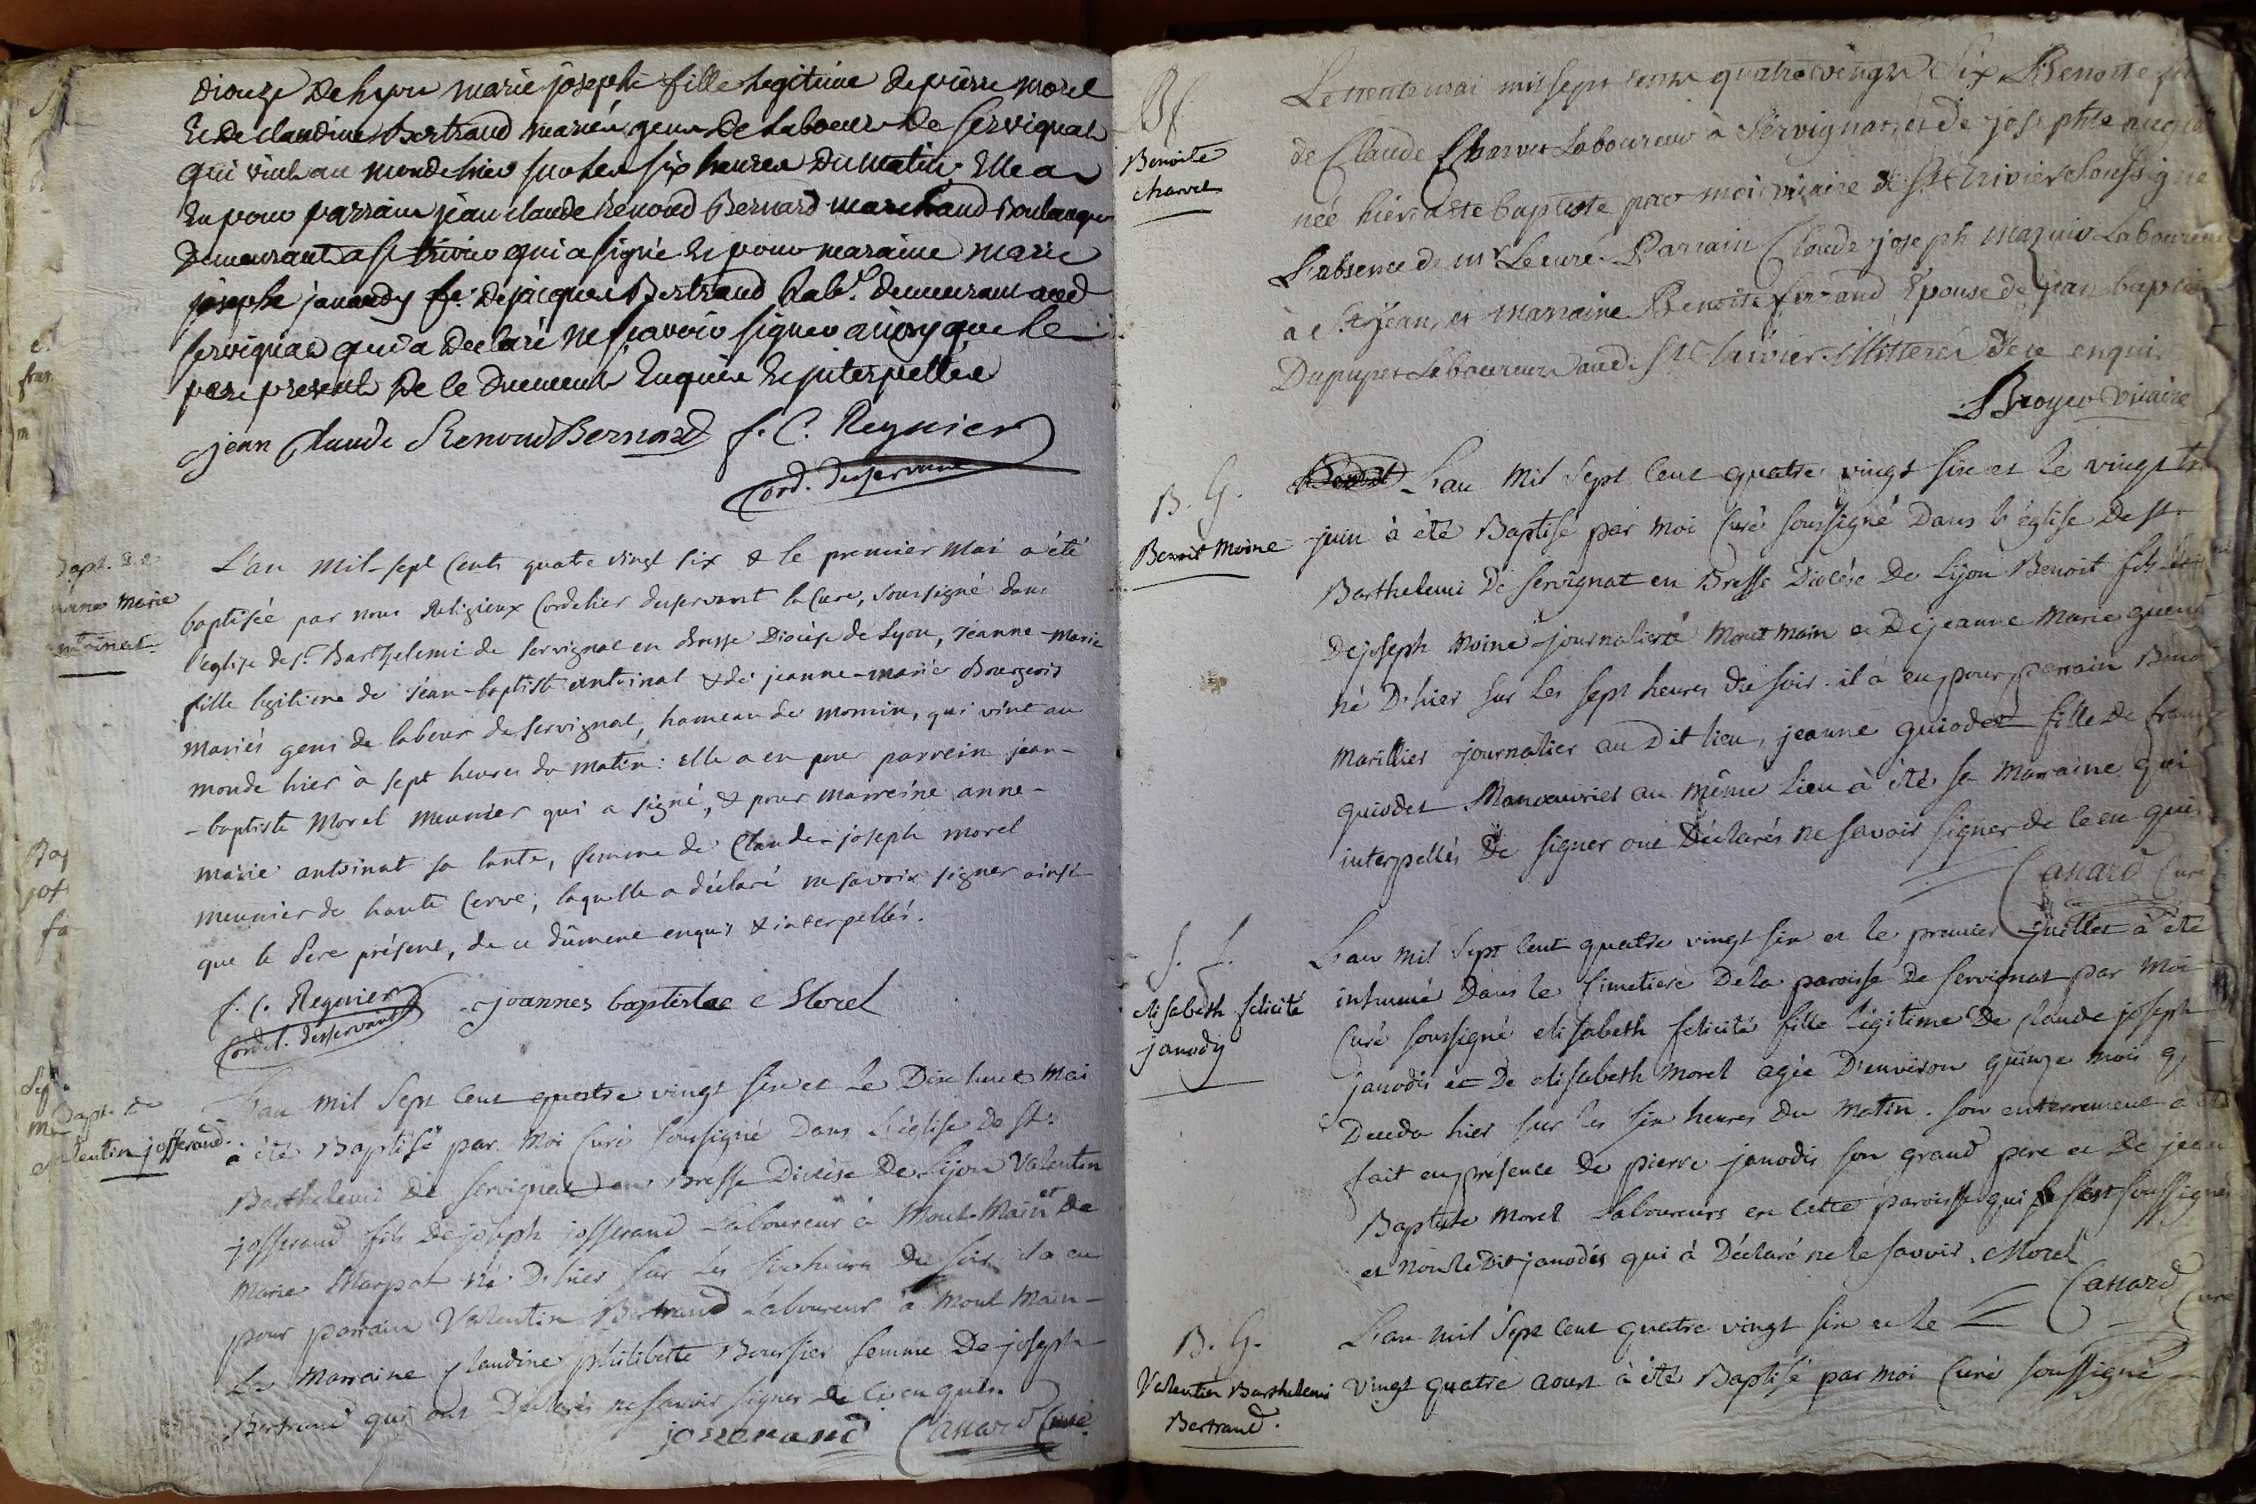 Diouze De Lyon marie josephe fille legitime de pierre morel
Et de claudine Bertrand mariés gens de Laboeur de Servignat
qui vint au monde hier sur les six heures du matin. Elle a
Eu pour parrain jean claude Renoud Bernard marchand Boulanger
Demeurant a st trivier qui a signé Et pour maraine marie
josephe janaudy fe. de jacques Bertrand lab.r demeurant aud
servignat qui a declaré ne sçavoir signer ainsy que le
pere present De le duement Enquis Et interpellés
jean Claude Renoud Bernard f. C. Regnier
Cord. desservant
Bapt. de
jeanne Marie
antoinat
L'an mil-sept cents quatre vingt six & le premier Mai a été
baptisée par nous Religieux Cordelier desservant la Cure, soussigné dans
l'eglise de st. Barthelemi de servignat en Bresse Diocèse de Lyon, jeanne-marie
fille legitime de jean-baptiste antoinat & de jeanne-marie Bourgeois
mariés gens de labeur de servignat, hameau de momin, qui vint au
monde hier à sept heures du matin: elle a eu pour parrein jean-
-baptiste Morel meunier qui a signé, & pour marreine anne-
marie antoinat sa tante, femme de Claude-joseph morel
meunier de haute serve, laquelle a déclaré ne savoir signer ainsi
que le Pere présent, de ce dûment enquis & interpellés.
f. C. Regnier joannes baptistae Morel
Cordel. desservant
Bapt. de
valentin josserand
L'an mil Sept Cent quatre vingt six et Le Dix huit Mai
a été Baptisé par Moi Curé soussigné Dans L'église De st.
Barthelemi de servignat en Bresse Diocèse De Lyon Valentin
josserand fils De joseph josserand Laboureur à Mont-Main et De
Marie Marpat né D'hier sur Les six heures Du soir il a eu
pour parrain Valentin Bertrand Laboureur à Mont Main-
La Marraine Claudine philiberte Boursier femme De joseph
Bertrand qui ont Déclarés ne savoir signer de ce enquis.
josserand Canard Curé
Bf
Benoite
charvet
Le trente mai mil sept cents quatre vingts Six Benoite
de Claude Charvet Laboureur à Servignat, et de josephte
née hier a été baptisée par moi vicaire de St Trivier soussigné
L'absence de mr Le curé. Parrain Claude joseph Laboureur
à St jean, et marraine Benoite ferrand Epouse de jean baptiste
Dupuyet Laboureur aud. St Trivier illitterés de ce enquis
Broyer Vicaire
B. G.
Benoit Moine
L'an Mil Sept Cent quatre vingt six et le vingt
juin à été Baptisé par moi Curé soussigné Dans l'église De st
Barthelemi De servignat en Bresse Diocèse De Lyon Benoit fils
De joseph Moine journalier à Mont main et De jeanne Marie
né D'hier sur Les sept heures Du soir. il a eu pour parrain
Marillier journalier au Dit lieu, jeanne guiodet fille De
guiodet Manouvrier au même lieu à été sa Marraine qui
interpellés De signer ont Déclarés ne savoir signer de ce en quis
Canard Curé
S. f.
elisabeth felicité
janody
L'an mil Sept Cent quatre vingt six et le premier juillet à été
inhumé Dans le Cimetiere De la paroisse de servignat par Moi
Curé soussigné elisabeth felicité fille Légitime De Claude joseph
janodis et De elisabeth Morel agée D'environ quinze mois
Deceda hier sur les six heures Du Matin. son enterrement à été
fait en présence De pierre janodis son grand pere et De jean
Baptiste Morel Laboureurs en cette paroisse qui s'est soussigné
et Non le Dit janodis qui à Déclaré ne le savoir. Morel
Canard Curé
B. G.
Valentin Barthelemi
Bertrand.
L'an mil Sept Cent quatre vingt six et le
vingt quatre aoust à été Baptisé par moi Curé soussigné